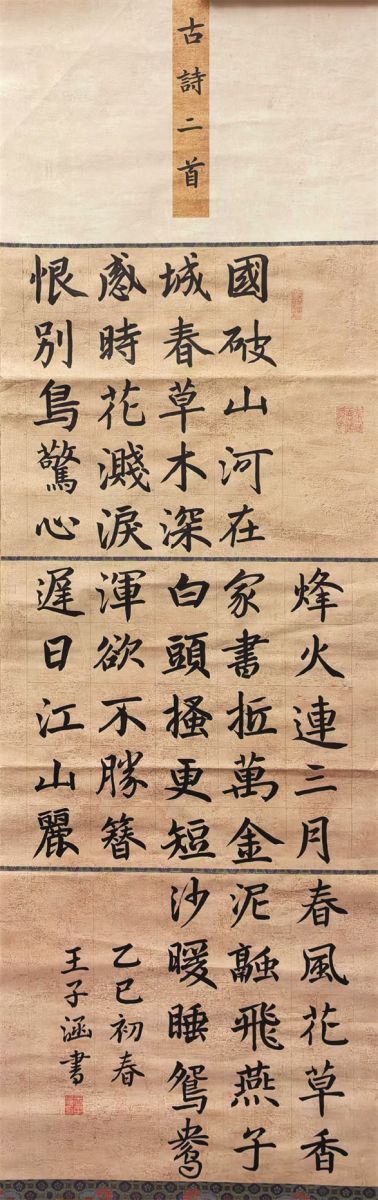 古詩二首
國破山河在
城春草木深
感時花濺淚
恨別鳥驚心
烽火連三月
家書抵萬金
白頭搔更短
渾欲不勝簪
遲日江山麗
春風花草香
泥融飛燕子
沙暖睡鴛鴦
乙巳初春
王子涵書